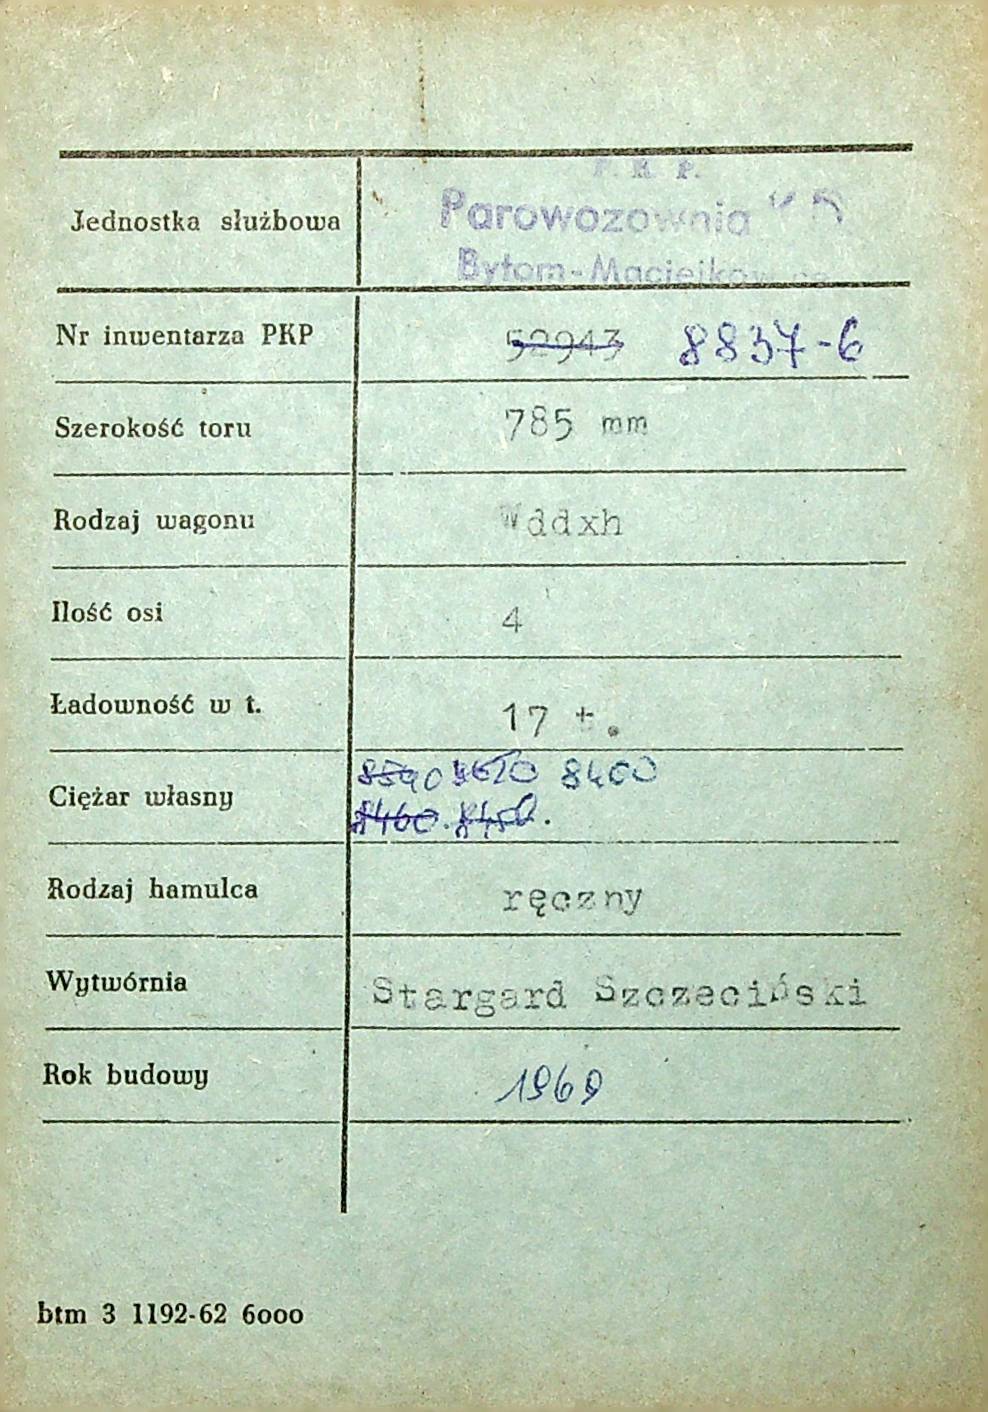 P. K. P.
Jednostka służbowa Parowozownia
Bytom-Maciejkow
Nr inwentarza PKP 52943 8837-6
Szerokość toru 785 mm
Rodzaj wagonu Wddxh
Ilość osi 4
Ładowność w t. 17 t.
8400
Ciężar własny 8460.
Rodzaj hamulca ręczny
Wytwórnia Stargard Szczeciński
Rok budowy 1969
btm 3 1192-62 6ooo